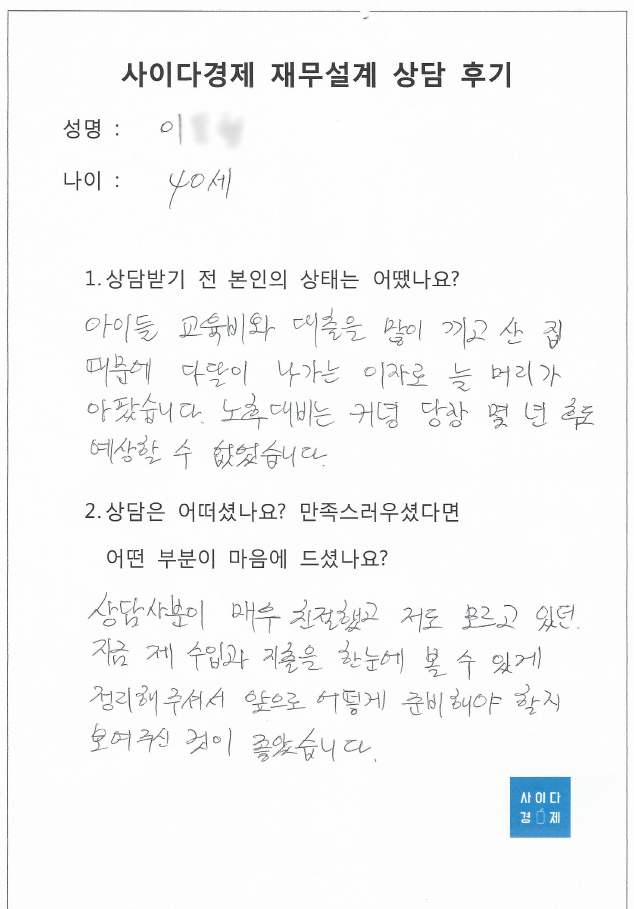 사이다경제 재무설계 상담 후기
성명 : 이
나이 : 40세
1. 상담받기 전 본인의 상태는 어땠나요?
아이들 교육비와 대출을 많이 끼고 산 집
때문에 다달이 나가는 이자로 늘 머리가
아팠습니다. 노후대비는 커녕 당장 몇 년 후도
예상할 수 없었습니다.
2. 상담은 어떠셨나요? 만족스러우셨다면
어떤 부분이 마음에 드셨나요?
상담사분이 매우 친절했고 저도 모르고 있던.
지금 제 수입과 지출을 한눈에 볼 수 있게
정리해주셔서 앞으로 어떻게 준비해야 할지
보여주신 것이 좋았습니다.
사이다
경제